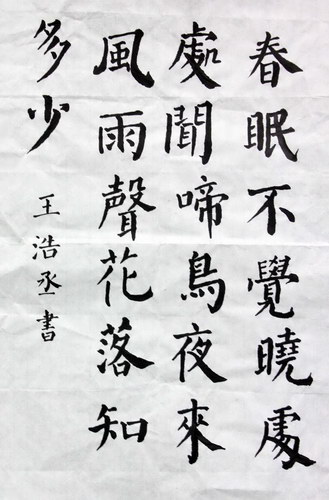 春眠不覺曉處
處聞啼鳥夜來
風雨聲花落知
多少
王浩丞書